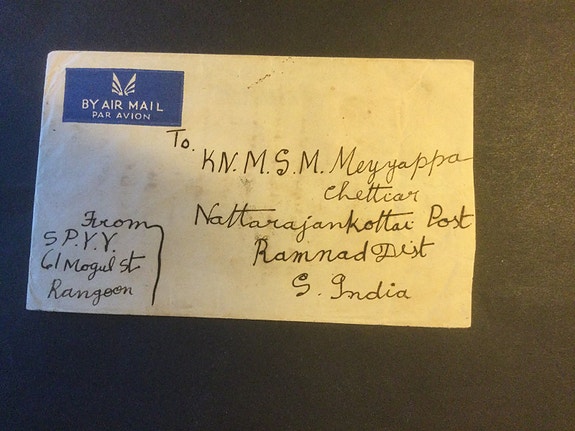 BY AIR MAIL
PAR AVION
To.
KN. M. S. M. Meyyappa
Chettiar
Nattarajankottai Post
Ramnad Dist
S. India
From
S P. Y. Y.
61 Mogul St
Rangoon